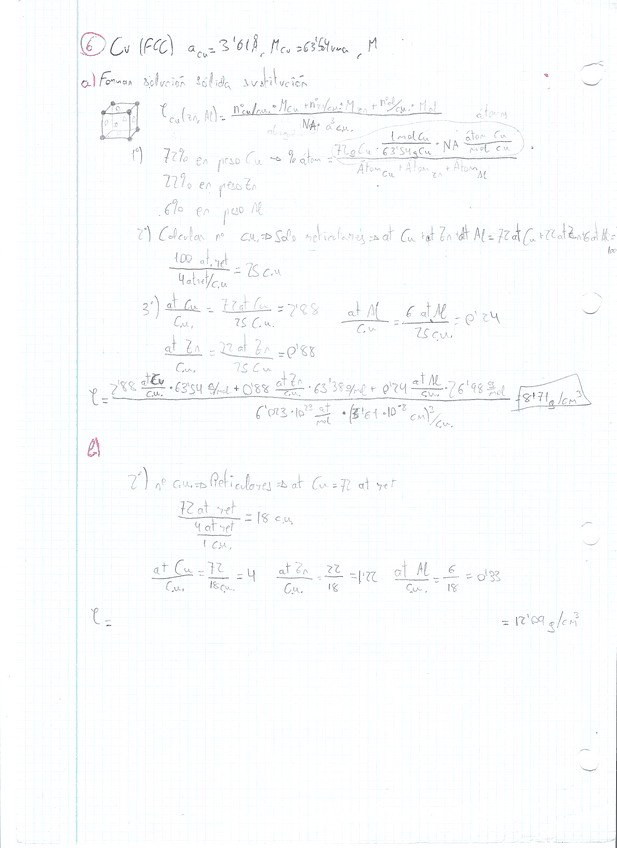 6 Cu (FCC) a_Cu = 3'61Å, M_Cu = 63'54 uma, M
a) Forman solución sólida sustitución
ρ_Cu(Zn, Al) = (nºCu/c.u. · M_Cu + nºZn/c.u. · M_Zn + nºAl/c.u. · M_Al) / (NA · a³ c.u.)
átomos
1º) 72% en peso Cu → % átom = (72g Cu · 1 mol Cu / 63'54 g Cu · NA átom Cu / mol Cu) / (Átom_Cu + Átom_Zn + Átom_Al)
22% en peso Zn
6% en peso Al
2º) Calcular nº c.u. ⇒ Solo reticulares ⇒ at Cu + at Zn + at Al = 72 at Cu + 22 at Zn + 6 at Al =
100 at. ret / 4 at ret/c.u = 25 c.u
3º) at Cu / c.u. = 72 at Cu / 25 c.u. = 2'88 at Al / c.u = 6 at Al / 25 c.u. = 0'24
at Zn / c.u. = 22 at Zn / 25 c.u = 0'88
ρ = (2'88 at Cu / c.u. · 63'54 g/mol + 0'88 at Zn / c.u. · 65'38 g/mol + 0'24 at Al / c.u. · 26'98 g/mol) / (6'023 · 10²³ at / mol · (3'61 · 10⁻⁸ cm)³/c.u.) = 8'71 g/cm³
b)
2º) nº c.u. ⇒ Reticulares ⇒ at Cu = 72 at ret
72 at ret / (4 at ret / 1 c.u.) = 18 c.u.
at Cu / c.u. = 72 / 18 c.u. = 4 at Zn / c.u. = 22 / 18 = 1'22 at Al / c.u. = 6 / 18 = 0'33
ρ = = 12'09 g/cm³